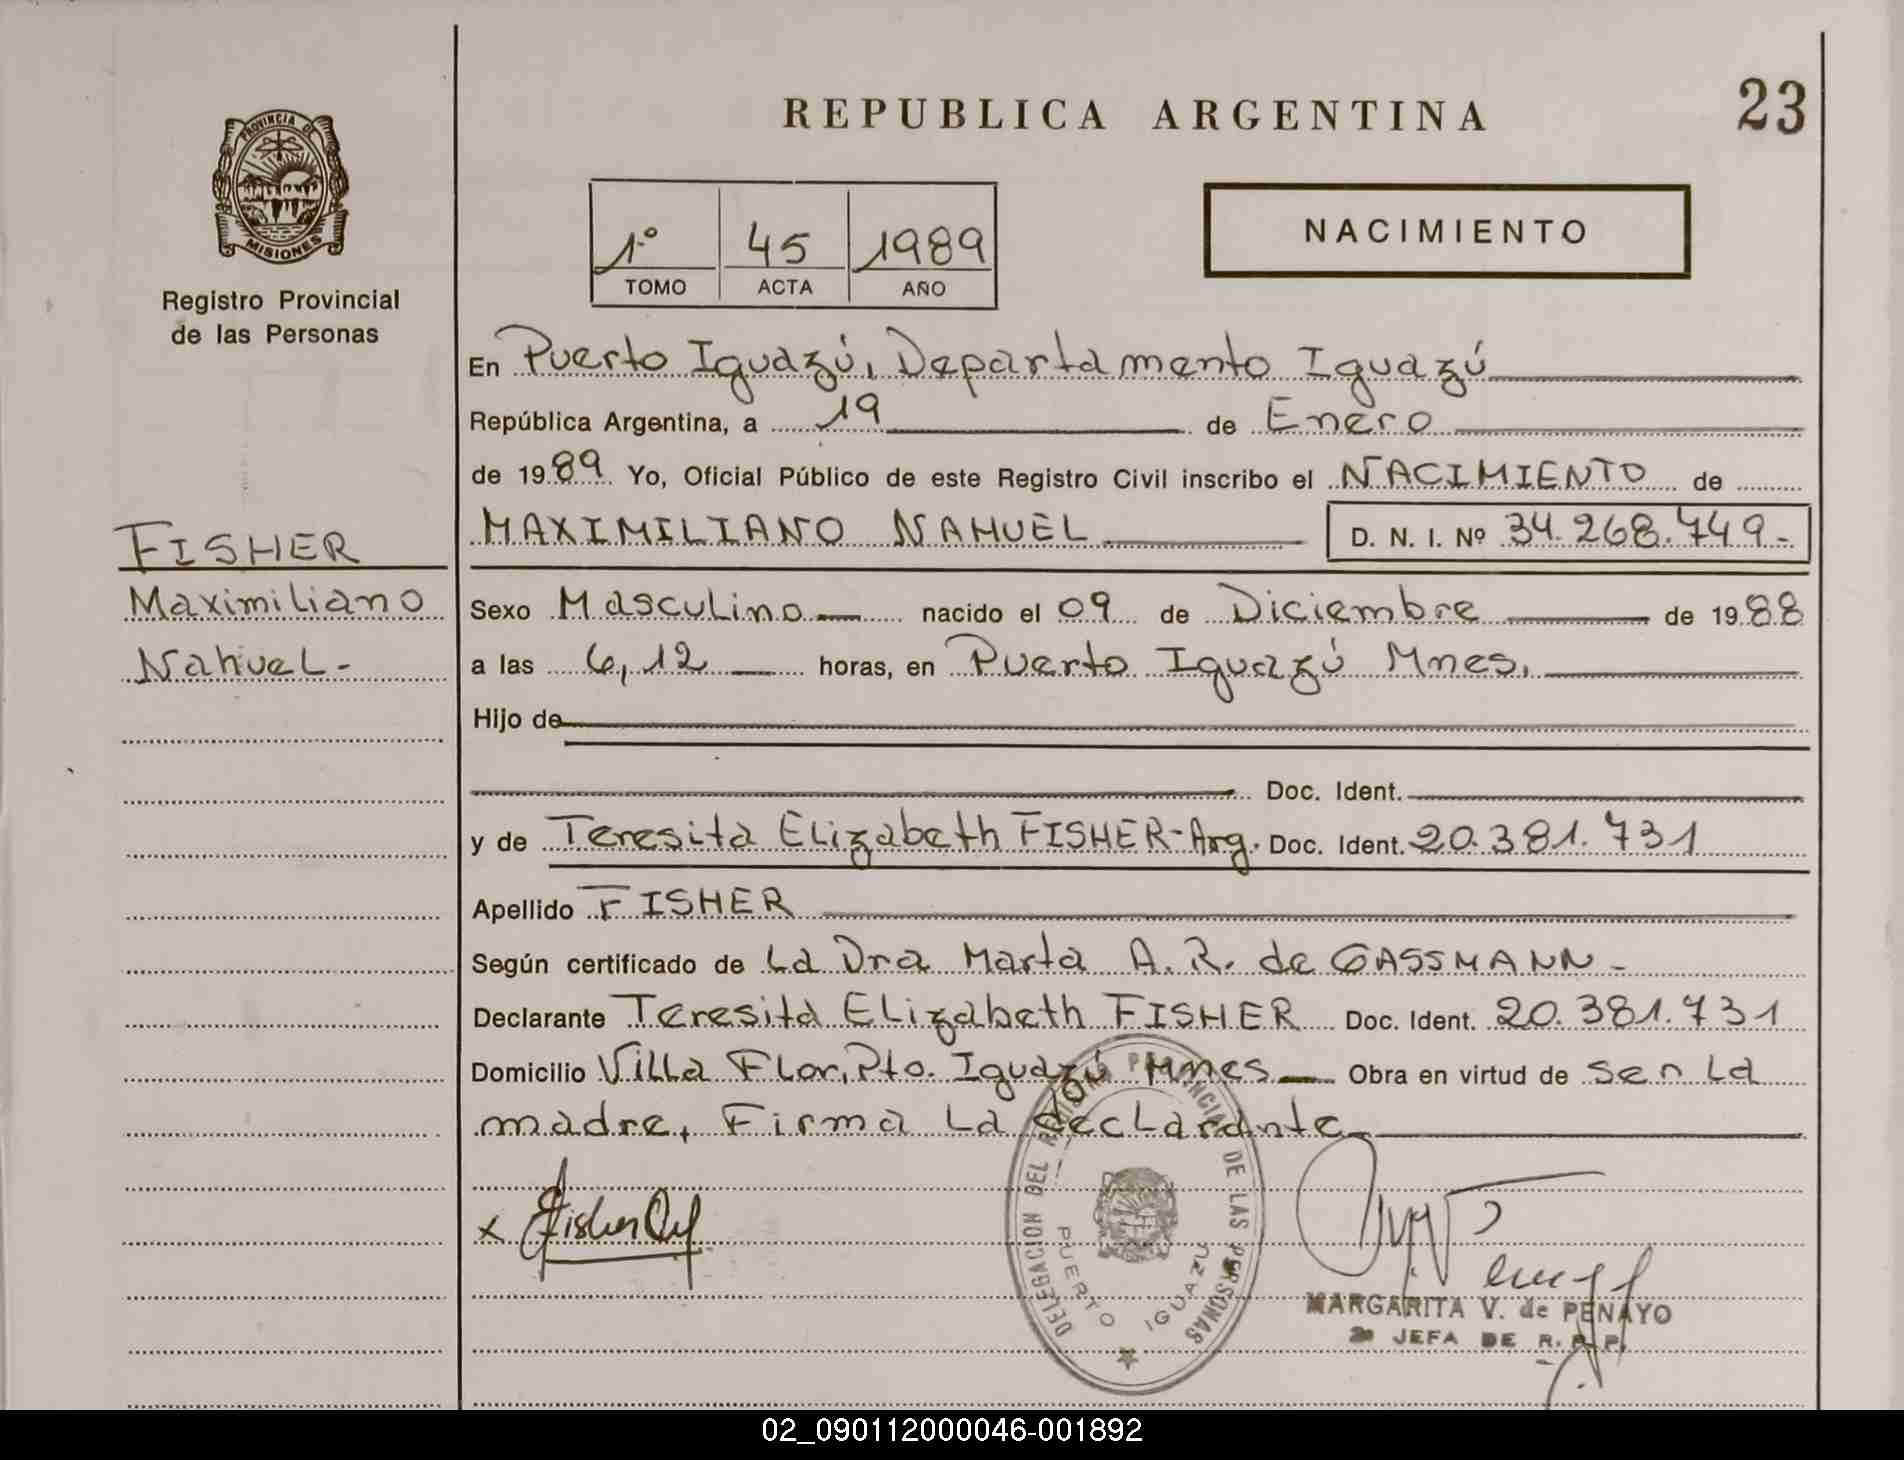 PROVINCIA DE
MISIONES
Registro Provincial
de las Personas
REPUBLICA ARGENTINA
23
1º 45 1989
TOMO ACTA AÑO
NACIMIENTO
En Puerto Iguazú, Departamento Iguazú
República Argentina, a 19 de Enero
de 1989 Yo, Oficial Público de este Registro Civil inscribo el NACIMIENTO de
MAXIMILIANO NAHUEL D. N. I. Nº 34.268.749.-
FISHER
Maximiliano
Nahuel-
Sexo Masculino nacido el 09 de Diciembre de 1988
a las 6,12 horas, en Puerto Iguazú Mnes.
Hijo de
Doc. Ident.
y de Teresita Elizabeth FISHER-Arg. Doc. Ident. 20.381.731
Apellido FISHER
Según certificado de La Dra Marta A. R. de GASSMANN-
Declarante Teresita Elizabeth FISHER Doc. Ident. 20.381.731
Domicilio Villa Flor, Pto. Iguazú Mnes Obra en virtud de ser la
madre, Firma la declarante
x Fisher
DELEGACION DEL REGISTRO PROVINCIAL DE LAS PERSONAS
PUERTO IGUAZU
MARGARITA V. de PENAYO
2a JEFA DE R. P. P.
02_090112000046-001892